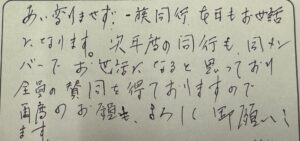 あい変りませず、一族同行 本年もお世話
になります。次年度の同行も、同メン
バーでお世話になると思っており
全員の賛同を得ておりますので
再度のお願も、よろしく御願いし
ます